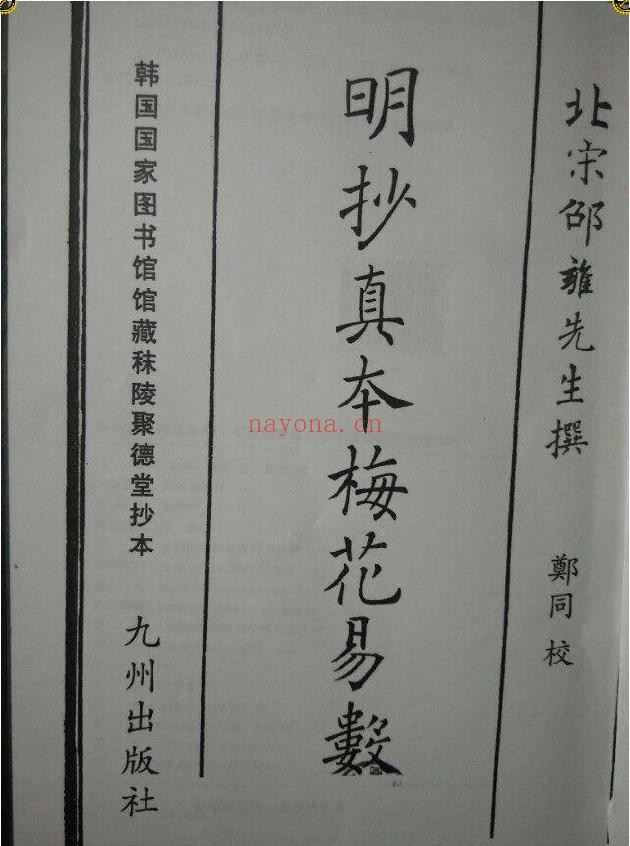 北宋邵雍先生撰 鄭同校
明抄真本梅花易數
韩国国家图书馆馆藏秣陵聚德堂抄本 九州出版社
nayona.cn